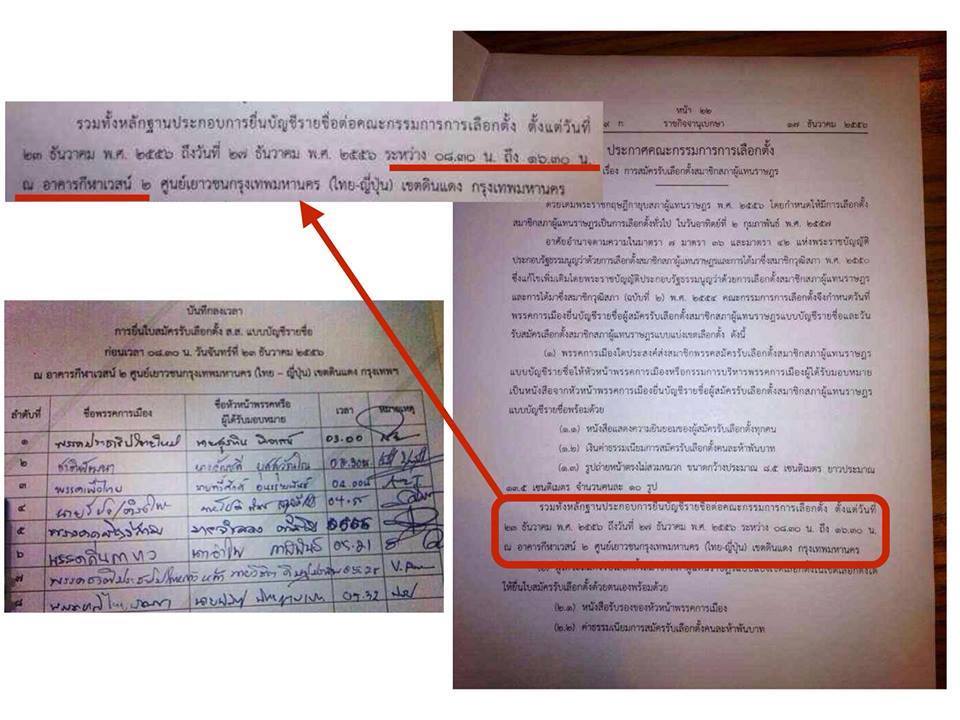 รวมทั้งหลักฐานประกอบการยื่นบัญชีรายชื่อต่อคณะกรรมการการเลือกตั้ง ตั้งแต่วันที่
๒๓ ธันวาคม พ.ศ. ๒๕๕๖ ถึงวันที่ ๒๗ ธันวาคม พ.ศ. ๒๕๕๖ ระหว่าง ๐๘.๓๐ น. ถึง ๑๖.๓๐ น.
ณ อาคารกีฬาเวสน์ ๒ ศูนย์เยาวชนกรุงเทพมหานคร (ไทย-ญี่ปุ่น) เขตดินแดง กรุงเทพมหานคร
บันทึกลงเวลา
การยื่นใบสมัครรับเลือกตั้ง ส.ส. แบบบัญชีรายชื่อ
ก่อนเวลา ๐๘.๓๐ น. วันจันทร์ที่ ๒๓ ธันวาคม ๒๕๕๖
ณ อาคารกีฬาเวสน์ ๒ ศูนย์เยาวชนกรุงเทพมหานคร (ไทย – ญี่ปุ่น) เขตดินแดง กรุงเทพฯ
ลำดับที่ ชื่อพรรคการเมือง ชื่อหัวหน้าพรรคหรือ เวลา หมายเหตุ
ผู้ได้รับมอบหมาย
๑ พรรคประชาธิปไตยใหม่ 03.00
๒ ชาติพัฒนา
๓ พรรคเพื่อไทย
๔
๕
๖ 05.21
๗
๘ 05.32
หน้า ๒๒
๙ ก ราชกิจจานุเบกษา ๑๗ ธันวาคม ๒๕๕๖
ประกาศคณะกรรมการการเลือกตั้ง
เรื่อง การสมัครรับเลือกตั้งสมาชิกสภาผู้แทนราษฎร
ด้วยได้มีพระราชกฤษฎีกายุบสภาผู้แทนราษฎร พ.ศ. ๒๕๕๖ โดยกำหนดให้มีการเลือกตั้ง
สมาชิกสภาผู้แทนราษฎรเป็นการเลือกตั้งทั่วไป ในวันอาทิตย์ที่ ๒ กุมภาพันธ์ พ.ศ. ๒๕๕๗
อาศัยอำนาจตามความในมาตรา ๗ มาตรา ๓๖ และมาตรา ๔๒ แห่งพระราชบัญญัติ
ประกอบรัฐธรรมนูญว่าด้วยการเลือกตั้งสมาชิกสภาผู้แทนราษฎรและการได้มาซึ่งสมาชิกวุฒิสภา พ.ศ. ๒๕๕๐
ซึ่งแก้ไขเพิ่มเติมโดยพระราชบัญญัติประกอบรัฐธรรมนูญว่าด้วยการเลือกตั้งสมาชิกสภาผู้แทนราษฎร
และการได้มาซึ่งสมาชิกวุฒิสภา (ฉบับที่ ๒) พ.ศ. ๒๕๕๔ คณะกรรมการการเลือกตั้งจึงกำหนดวันที่
พรรคการเมืองยื่นบัญชีรายชื่อผู้สมัครรับเลือกตั้งสมาชิกสภาผู้แทนราษฎรแบบบัญชีรายชื่อและวัน
รับสมัครเลือกตั้งสมาชิกสภาผู้แทนราษฎรแบบแบ่งเขตเลือกตั้ง ดังนี้
(๑) พรรคการเมืองใดประสงค์ส่งสมาชิกพรรคสมัครรับเลือกตั้งสมาชิกสภาผู้แทนราษฎร
แบบบัญชีรายชื่อให้หัวหน้าพรรคการเมืองหรือกรรมการบริหารพรรคการเมืองผู้ได้รับมอบหมาย
เป็นหนังสือจากหัวหน้าพรรคการเมืองยื่นบัญชีรายชื่อผู้สมัครรับเลือกตั้งสมาชิกสภาผู้แทนราษฎร
แบบบัญชีรายชื่อพร้อมด้วย
(๑.๑) หนังสือแสดงความยินยอมของผู้สมัครรับเลือกตั้งทุกคน
(๑.๒) เงินค่าธรรมเนียมการสมัครรับเลือกตั้งคนละห้าพันบาท
(๑.๓) รูปถ่ายหน้าตรงไม่สวมหมวก ขนาดกว้างประมาณ ๘.๕ เซนติเมตร ยาวประมาณ
๑๓.๕ เซนติเมตร จำนวนคนละ ๑๐ รูป
รวมทั้งหลักฐานประกอบการยื่นบัญชีรายชื่อต่อคณะกรรมการการเลือกตั้ง ตั้งแต่วันที่
๒๓ ธันวาคม พ.ศ. ๒๕๕๖ ถึงวันที่ ๒๗ ธันวาคม พ.ศ. ๒๕๕๖ ระหว่าง ๐๘.๓๐ น. ถึง ๑๖.๓๐ น.
ณ อาคารกีฬาเวสน์ ๒ ศูนย์เยาวชนกรุงเทพมหานคร (ไทย-ญี่ปุ่น) เขตดินแดง กรุงเทพมหานคร
ให้ยื่นใบสมัครรับเลือกตั้งด้วยตนเองพร้อมด้วย
(๒.๑) หนังสือรับรองของหัวหน้าพรรคการเมือง
(๒.๒) ค่าธรรมเนียมการสมัครรับเลือกตั้งคนละห้าพันบาท